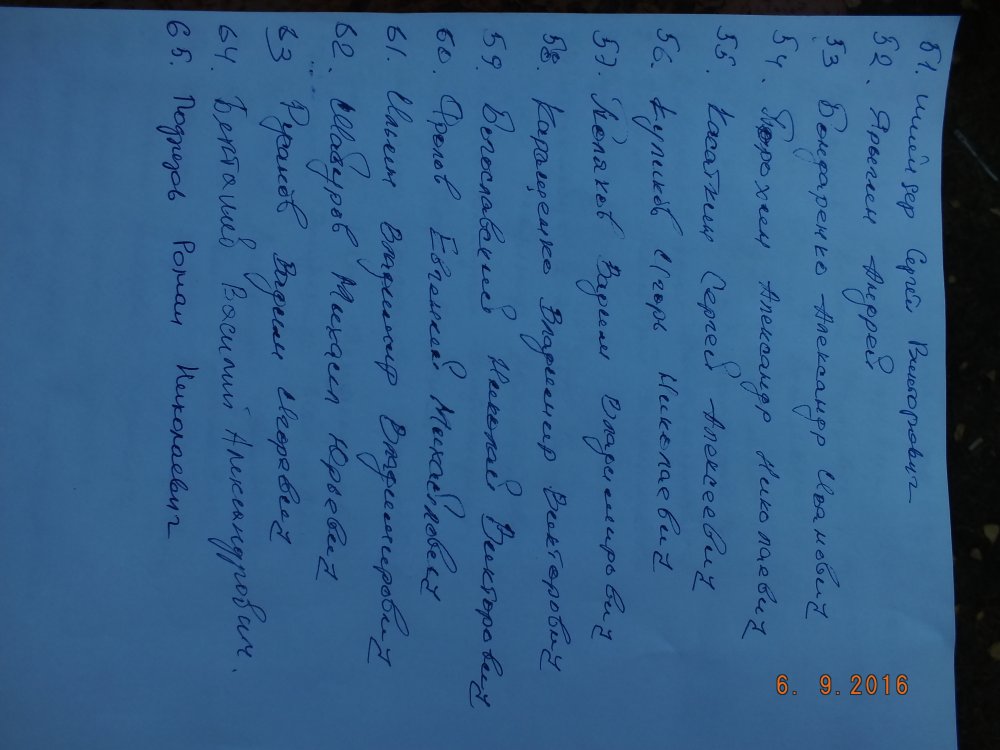 51. Шнейдер Сергей Викторович
52. Ярыгин Андрей
53 Бондаренко Александр Иванович
54. Порохин Александр Николаевич
55. Касаткин Сергей Алексеевич
56. Куликов Игорь Николаевич
57. Поляков Вадим Владимирович
58. Каращенко Владимир Викторович
59. Богославский Николай Викторович
60. Фролов Евгений Михайлович
61. Ильин Владимир Владимирович
62. Шавуров Михаил Юрьевич
63 Русаков Вадим Игоревич
64. Бекташев Василий Александрович.
65. Подрезов Роман Николаевич
6. 9.2016